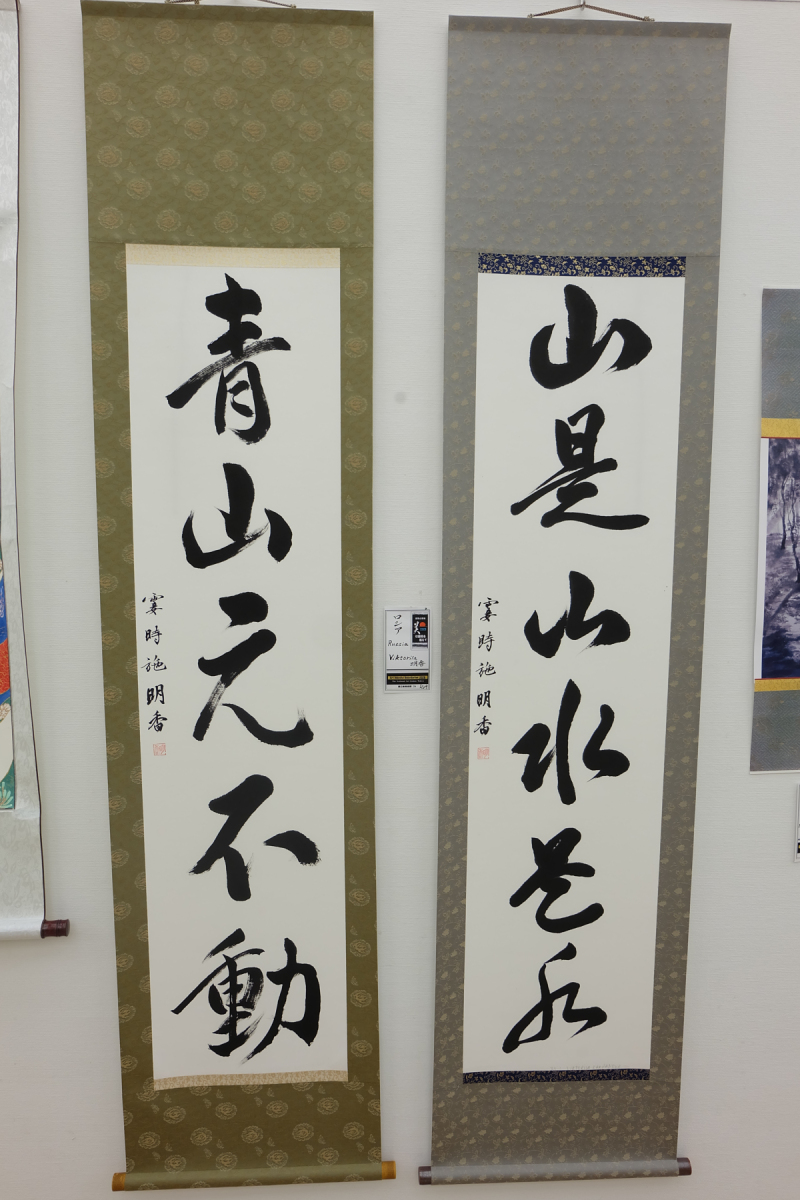 山是山水是水
時施明香
青山元不動
時施明香
ロシア
Russia
Viktoriia
明香